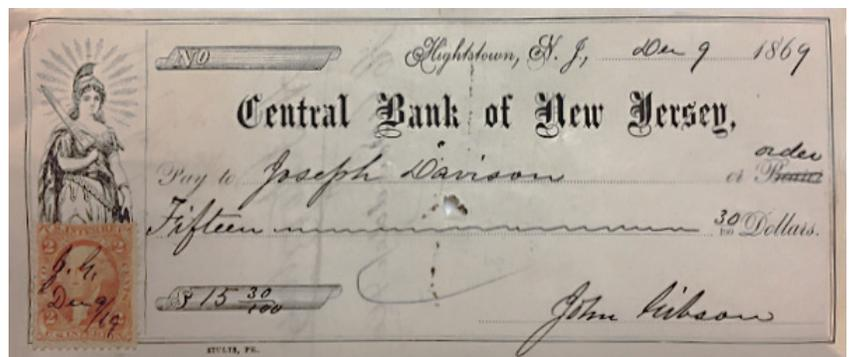 NO
Hightstown, N. J., Dec 9 1869
Central Bank of New Jersey,
order
Pay to Joseph Davison or Bearer
Fifteen 30/100 Dollars.
$ 15 30/100
John Gibson
2 2
J. G.
Dec 9/69
2 2
STULTS, PR.